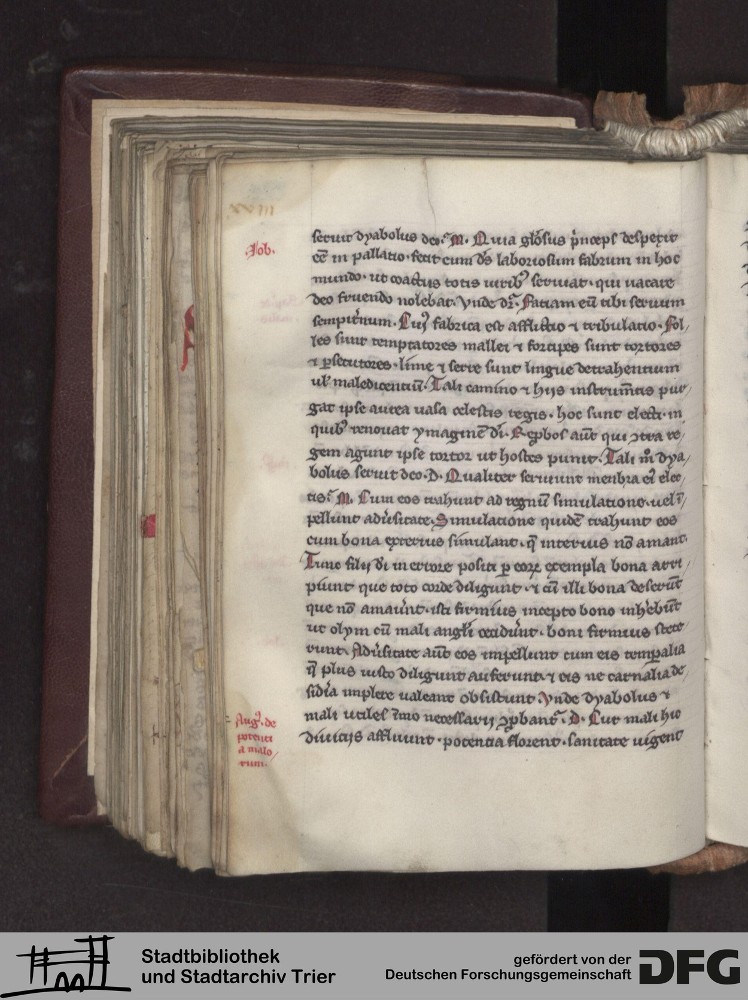 xxiii
Job.
seruit dyabolus deo. M. Quia gl'osus p'nceps despexit
ee in pallatio. fecit eum ds laboriosum fabrum in hoc
mundo. ut coactus totis uirib' seruiat. qui uacare
deo fruendo nolebat. Vnde dr. Faciam eu tibi seruum
sempit'num. Cui' fabrica est afflictio ⁊ tribulatio. Fol/
les sunt temptatores mallei ⁊ forcipes sunt tortores
⁊ psecutores. lime ⁊ serre sunt lingue detrahentium
ul' maledicentiu. Tali camino ⁊ hijs instrumtis pur/
gat ipse aurea uasa celestis regis. hoc sunt electi. in
quib' renouat ymagine di. Reprbos aut qui ɔtra re/
gem agunt ipse tortor ut hostes punit. Tali m dya/
bolus seruit deo. D. Qualiter seruiunt menbra ei' elec/
tis. M. Cum eos trahunt ad regnu simulatione. uel i/
pellunt adu'sitate. Simulatione quide trahunt eos
cum bona exterius simulant. q interius no amant.
Tunc filij di in errore positi p eorꝝ exempla bona arri/
piunt que toto corde diligunt. ⁊ cu illi bona deserut
que no amau'nt. isti firmius incepto bono inh'ebut
ut olym cu mali angli cecidunt. boni firmius stete/
runt. Adu'sitate aut eos impellunt cum eis temporalia
q plus iusto diligunt auferunt. ⁊ eis ne carnalia de/
sid'ia implere ualeant obsistunt. Vnde dyabolus ⁊
mali utiles imo necessarij ꝓbant. D. Cur mali hic
diuicijs affluunt. potencia florent. sanitate uigent
Aug'. de
potenti
a malo/
rum.
Stadtbibliothek
und Stadtarchiv Trier
gefördert von der
Deutschen Forschungsgemeinschaft
DFG